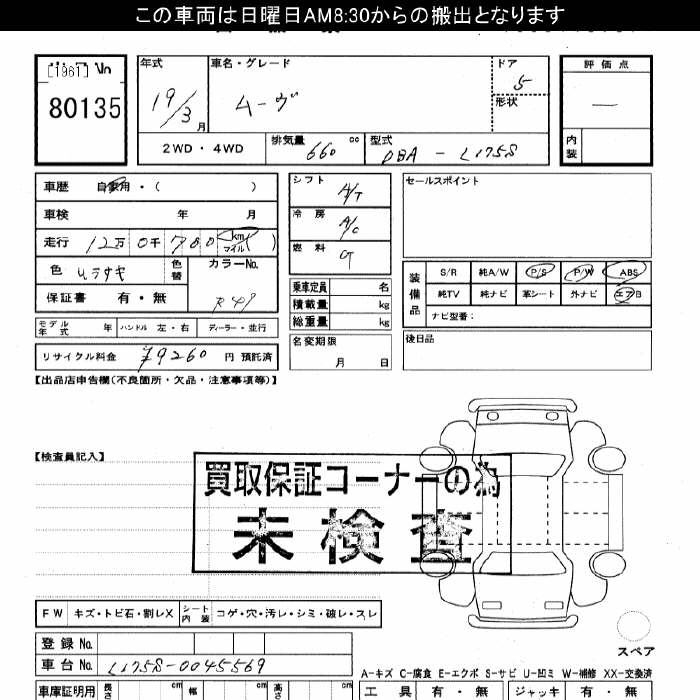 この車両は日曜日AM8:30からの搬出となります
[1961] No
80135
年式
19/3 月
車名・グレード
ムーヴ
ドア
5
形状
評価点
—
内装
2WD・4WD
排気量 660 cc
型式 DBA - L175S
車歴 自家用・( )
車検 年 月
走行 12万 0千 780 km マイル ( )
色 ムラサキ
色替
カラーNo.
保証書 有・無
モデル年式 年
ハンドル 左・右
ディーラー・並行
リサイクル料金 ¥9260 円 預託済
シフト A/T
冷房 A/C
燃料
乗車定員 名
積載量 kg
総重量 kg
名変期限
月 日
セールスポイント
装備品
S/R 純A/W P/S P/W ABS
純TV 純ナビ 革シート 外ナビ エアB
ナビ型番:
後日品
【出品店申告欄(不良箇所・欠品・注意事項等)】
【検査員記入】
買取保証コーナーの為
未検査
FW キズ・トビ石・割レX
シート内装 コゲ・穴・汚レ・シミ・破レ・スレ
登録No.
車台No. L175S-0045569
スペア
A-キズ C-腐食 E-エクボ S-サビ U-凹ミ W-補修 XX-交換済
車庫証明用 長さ cm 幅 cm 高さ cm
工具 有・無 ジャッキ 有・無